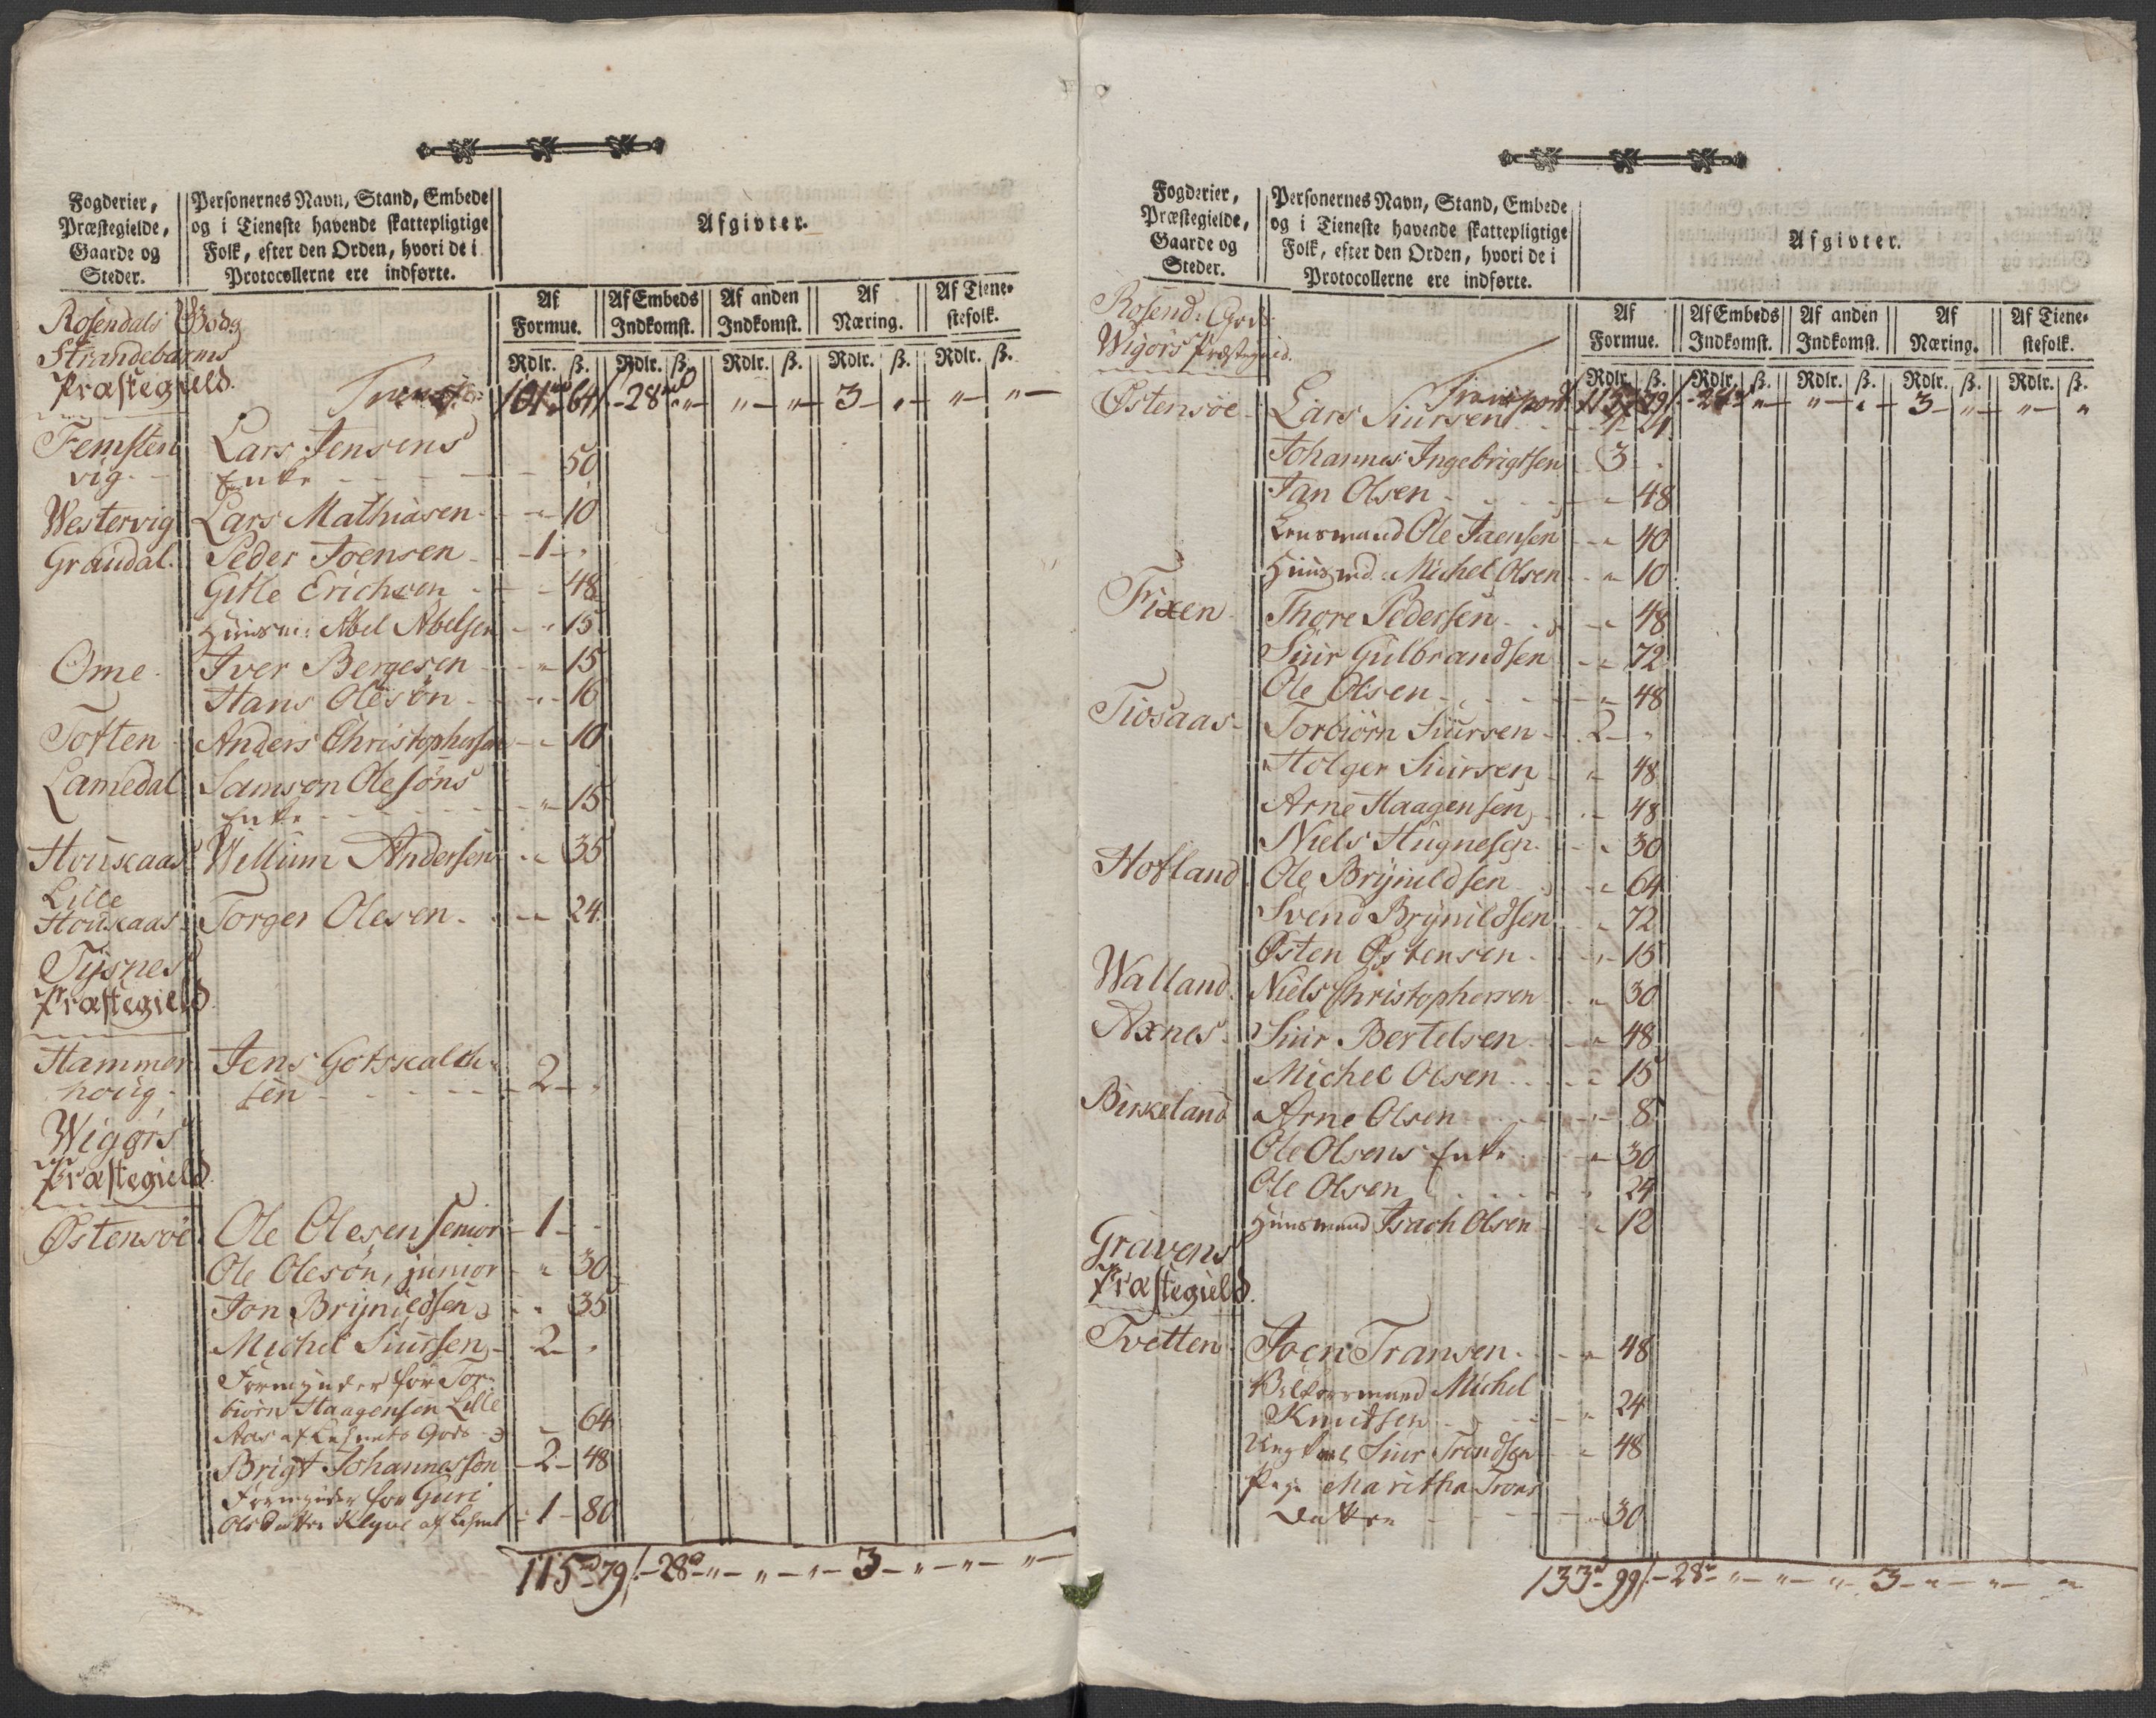 Fogderier,
Præstegielde,
Gaarde og
Steder.
Personernes Navn, Stand, Embede
og i Tieneste havende skattepligtige
Folk, efter den Orden, hvori de i
Protocollerne ere indførte.
Afgivter.
Af Formue. Af Embeds Indkomst. Af anden Indkomst. Af Næring. Af Tienestefolk.
Rdlr. ß. Rdlr. ß. Rdlr. ß. Rdlr. ß. Rdlr. ß.
Rosendals Godg
Strandebarms
Præstegield.
Transp: 101 64 - 28 " - " - " - 3 - " - " - " -
Femsten Lars Jensens
vig. Enke - - - 50
Westervig Lars Mathiasen - " 10
Graudal. Peder Joensen - 1 - "
Gitle Erichsen - 48
Huusm: Abel Abelsen - " 15
Ome. Iver Bergesen - " 15
Hans Olesøn - " 16
Toften Anders Christophersen - " 10
Lamedal Samson Olesøns
Enke - - - " 15
Houscaas Willium Andersen - " 35
Lille
Houscaas Torger Olesen - " 24
Tÿsnes
Præstegield.
Hammer Jens Gotscalch-
houg. sen - - - 2 - "
Wigørs
Præstegield.
Østensøe Ole Olesen Senior - 1 -
Ole Olesøn, junior - " 30
Jon Brÿnildsen - " 35
Michel Siursen - 2 - "
Formynder for Tor-
biørn Haagensen Lille
Aas af Lehnets Gods - 64
Brigt Johannessøn - 2 - 48
Formynder for Guri
Olsdatter Klyve af Lehnet - 1 - 80
115 - 79 - 28 - " - " - " - 3 - " - " - " -
Fogderier,
Præstegielde,
Gaarde og
Steder.
Personernes Navn, Stand, Embede
og i Tieneste havende skattepligtige
Folk, efter den Orden, hvori de i
Protocollerne ere indførte.
Afgivter.
Af Formue. Af Embeds Indkomst. Af anden Indkomst. Af Næring. Af Tienestefolk.
Rdlr. ß. Rdlr. ß. Rdlr. ß. Rdlr. ß. Rdlr. ß.
Rosend: Gods
Wigørs Præstegield.
Transport 115 79 - 28 " - " - " - 3 - " - " - "
Østensøe Lars Siursen - 1 - 24
Johannes Ingebrigtsen 3 - "
Jan Olsen - " 48
Lensmand Ole Jaensen - " 40
Huusmd: Michel Olsen - " 10
Fixen Thore Pedersen - " 48
Siur Gulbrandsen - " 72
Ole Olsen - " 48
Tiosaas Torbiørn Siursen - 2 - "
Holger Siursen " 48
Arne Haagensen - 48
Niels Hugnesen - " 30
Hofland Ole Brÿnildsen - " 64
Svend Brÿnildsen - " 72
Østen Østensen - " 15
Walland. Niels Christophersen - " 30
Axnes. Siur Bertelsen - " 48
Michel Olsen - " 15
Birkeland Arne Olsen - " 8
Ole Olsens Enke - " 30
Ole Olsen - " 24
Huusmand Isach Olsen - " 12
Gravens
Præstegield.
Tvetten Joen Transen - " 48
Michel
Knudsen - - " 24
Ungkarl Siur Trondsen - " 48
Pige Maritha Trons
Datter - - - " 30
133 - 99 - 28 - " - " - " - 3 - " - " - "